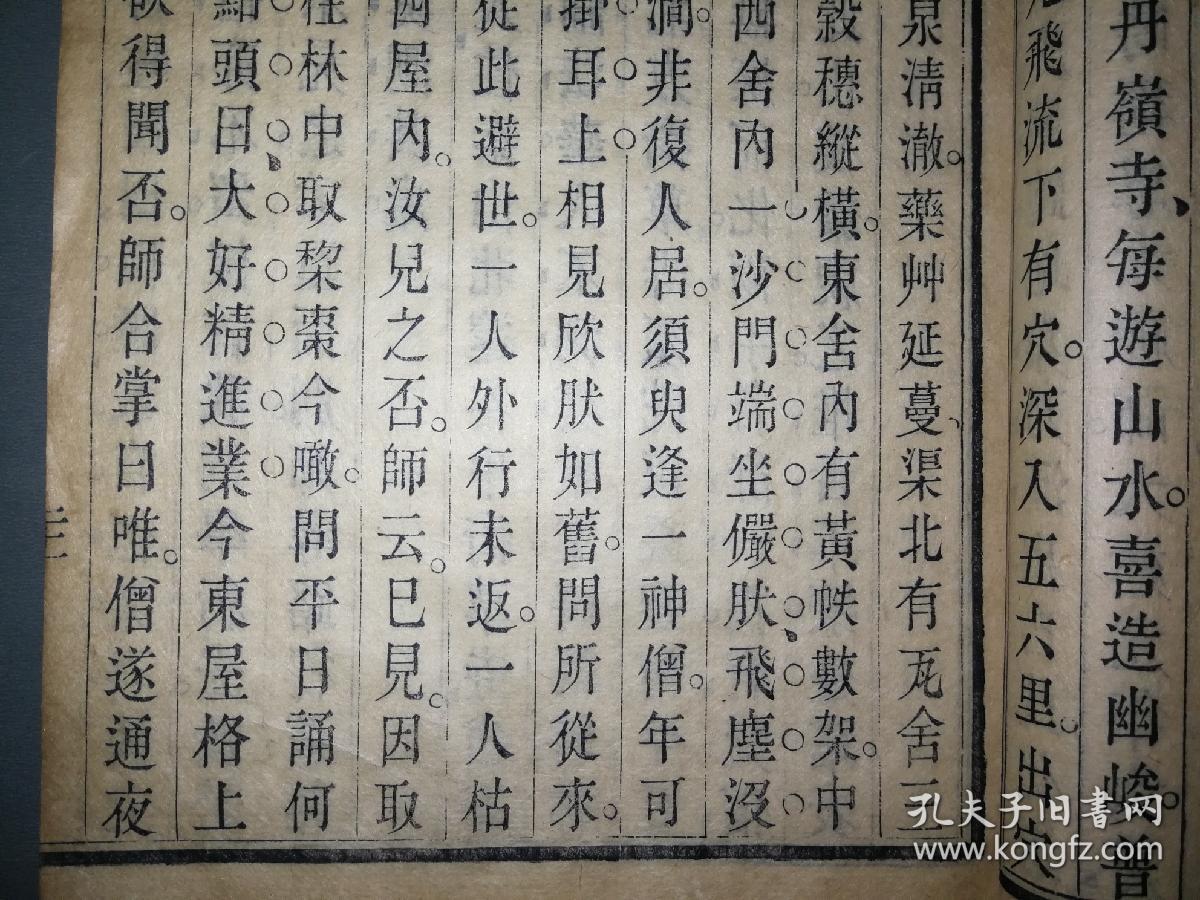 丹嶺寺、每遊山水。喜造幽峻。普
飛流下有穴。深入五六里。出穴
泉清澈。藥艸延蔓、渠北有瓦舍三
穀穗縱橫。東舍內有黃帙數架。中
西舍內一沙門端坐儼肰、飛塵沒
澗。非復人居。須臾逢一神僧。年可
掛耳上相見欣肰如舊。問所從來。
從此避世。一人外行未返。一人枯
西屋內。汝見之否。師云。巳見。因取
往林中取棃棗今噉。問平日誦何
點頭曰、大好精進業今東屋格上
欲得聞否。師合掌曰唯。僧遂通夜
孔夫子旧书网
www.kongfz.com